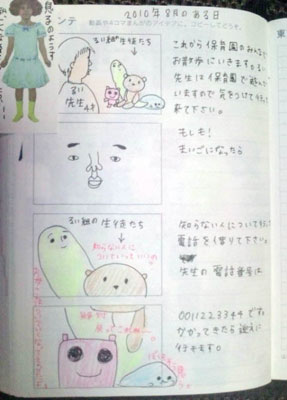 2010年8月のある日
ンテ
動画や4コマまんがのアイデアに。コピーしてどうぞ。
生徒たち
先生
4才
これから保育園のみんなで
お散歩にいきますが
先生は保育園で遊んで
いますので気をつけて行って
来て下さい。
もしも!
まいごになったら
るい組の生徒たち
知らない人に
ついていっていいの
知らない人について行って
電話を借りて下さい。
先生の電話番号は
0011223344です。
かかってきたら迎えに
行きます。
東